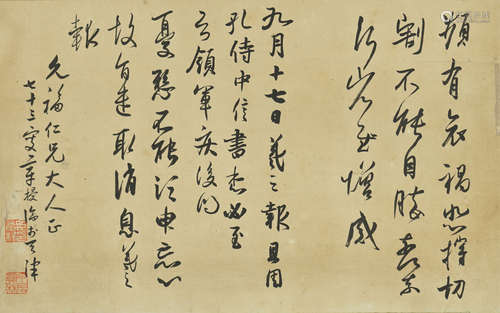 頻有哀禍悲摧切
割不能自勝奈
何省慰增感
九月十七日羲之報且因
孔侍中信書想必至
不知領軍疾後問
憂懸不能須臾忘心
故旨遣取消息羲之
報
允福仁兄大人正
七十三叟章梫臨於天津